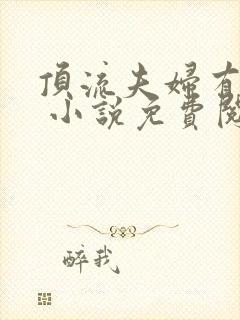 頂流夫婦有
小說免費閱
醉我